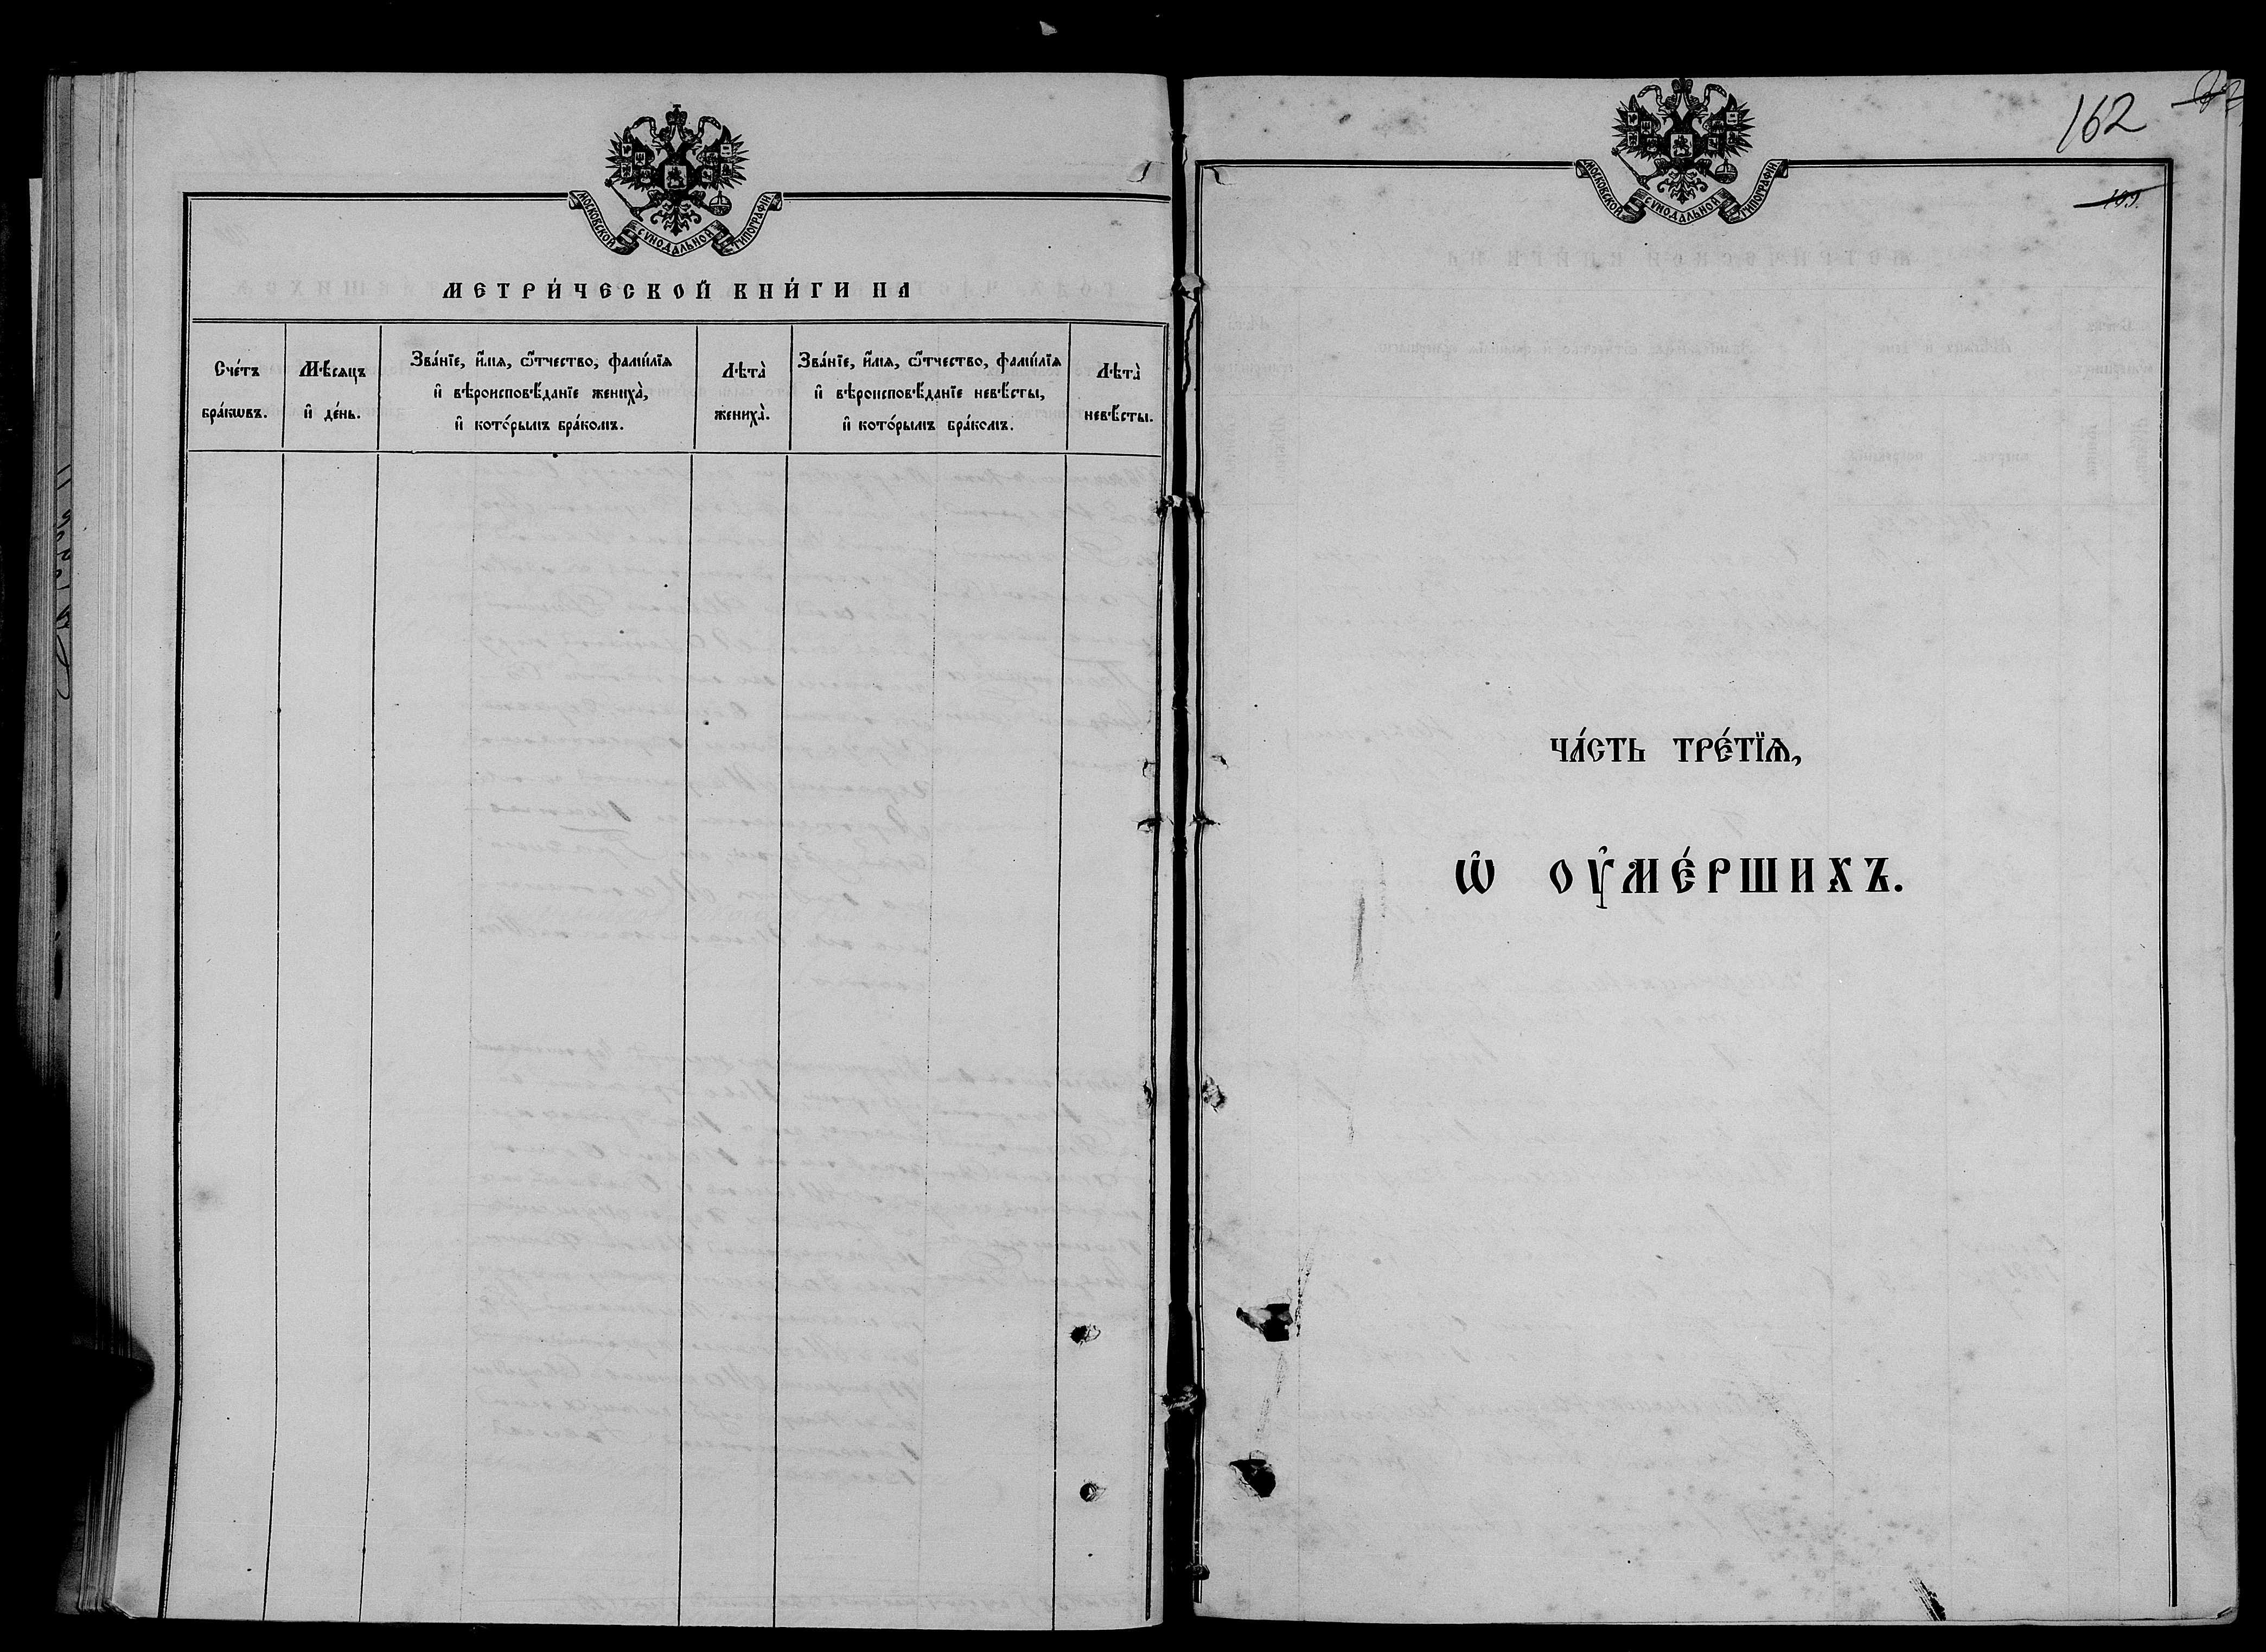 МОСКОВСКОЙ СѴНОДАЛЬНОЙ ТИПОГРАФІИ
МЕТРИ́ЧЕСКОЙ КНИ́ГИ НА
Сче́тъ
бра́кѡвъ.
Мѣ́сяцъ
и҆ де́нь.
Зва́нїе, и҆́мѧ, ѻ҆́тчество, фамѝлїѧ
и҆ вѣроисповѣ́данїе жениха̀,
и҆ кото́рымъ бра́комъ.
Лѣта̀
жениха̀.
Зва́нїе, и҆́мѧ, ѻ҆́тчество, фамѝлїѧ
и҆ вѣроисповѣ́данїе невѣ́сты,
и҆ кото́рымъ бра́комъ.
Лѣта̀
невѣ́сты.
МОСКОВСКОЙ СѴНОДАЛЬНОЙ ТИПОГРАФІИ
162
ЧА́СТЬ ТРЕ́ТЇѦ,
Ѡ҆ ОУ҆МЕ́РШИХЪ.